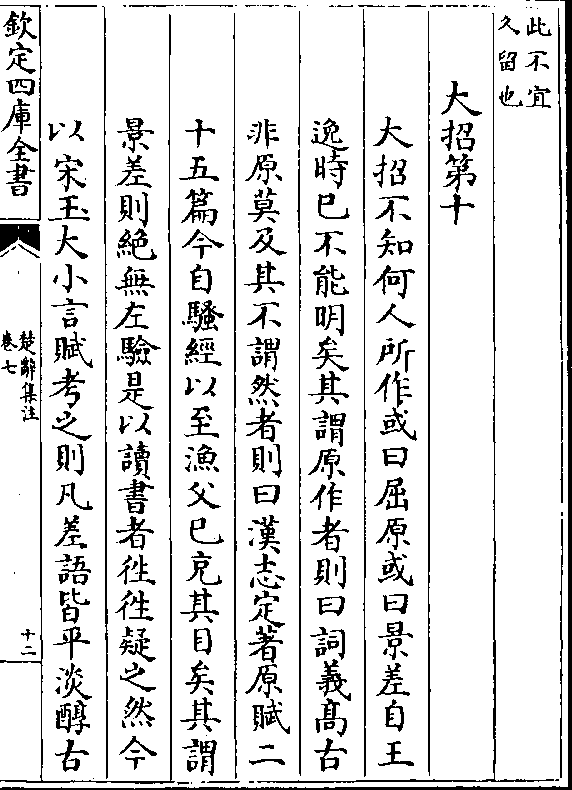 此不宜
久留也
大招第十
大招不知何人所作或曰屈原或曰景差自王
逸時已不能明矣其謂原作者則曰詞義髙古
非原莫及其不謂然者則曰漢志定著原賦二
十五篇今自騷經以至漁父已充其目矣其謂
景差則絶無左驗是以讀書者徃徃疑之然今
以宋玉大小言賦考之則凡差語皆平淡醇古
欽定四庫全書
楚辭集注
卷七
十二